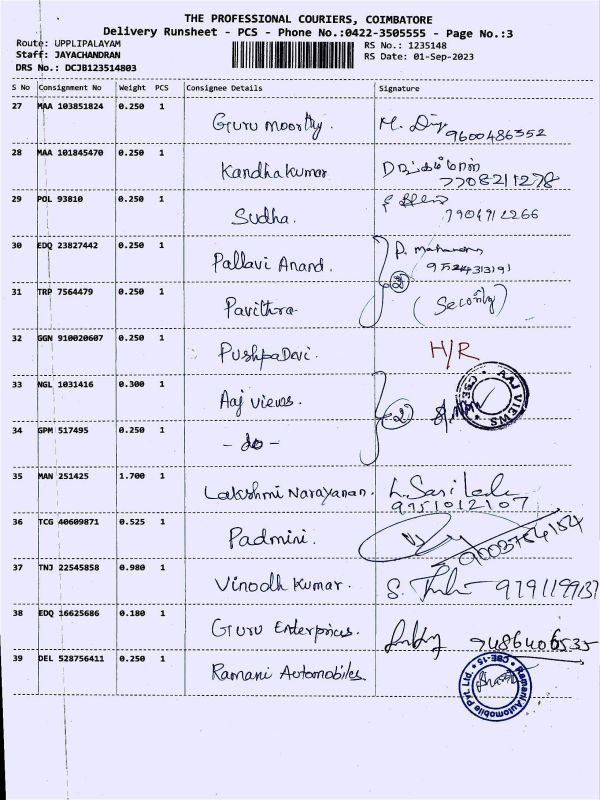 THE PROFESSIONAL COURIERS, COIMBATORE
Delivery Runsheet - PCS - Phone No.:0422-3505555 - Page No.:3
Route: UPPLIPALAYAM RS No.: 1235148
Staff: JAYACHANDRAN RS Date: 01-Sep-2023
DRS No.: DCJB123514803
S No Consignment No Weight PCS Consignee Details Signature
27 MAA 103851824 0.250 1 Guru moorthy. M. 9600486352
28 MAA 101845470 0.250 1 Kandhakumar 7708211278
29 POL 93810 0.250 1 Sudha. 7904912266
30 EDQ 23827442 0.250 1 Pallavi Anand. P. 9524313191
31 TRP 7564479 0.250 1 Pavithra (Security)
32 GGN 910020607 0.250 1 PushpaDevi. H/R
33 NGL 1031416 0.300 1 Aaj views. 2 AAJ VIEWS CBE
34 GPM 517495 0.250 1 - do -
35 MAN 251425 1.700 1 Lakshmi Narayanan. L. 9751012107
36 TCG 40609871 0.525 1 Padmini. 9003754154
37 TNJ 22545858 0.980 1 Vinodh Kumar. S. 9791199137
38 EDQ 16625686 0.180 1 Guru Enterprices. 9486406535
39 DEL 528756411 0.250 1 Ramani Automobiles Ramani Automobile Pvt. Ltd. CBE-15